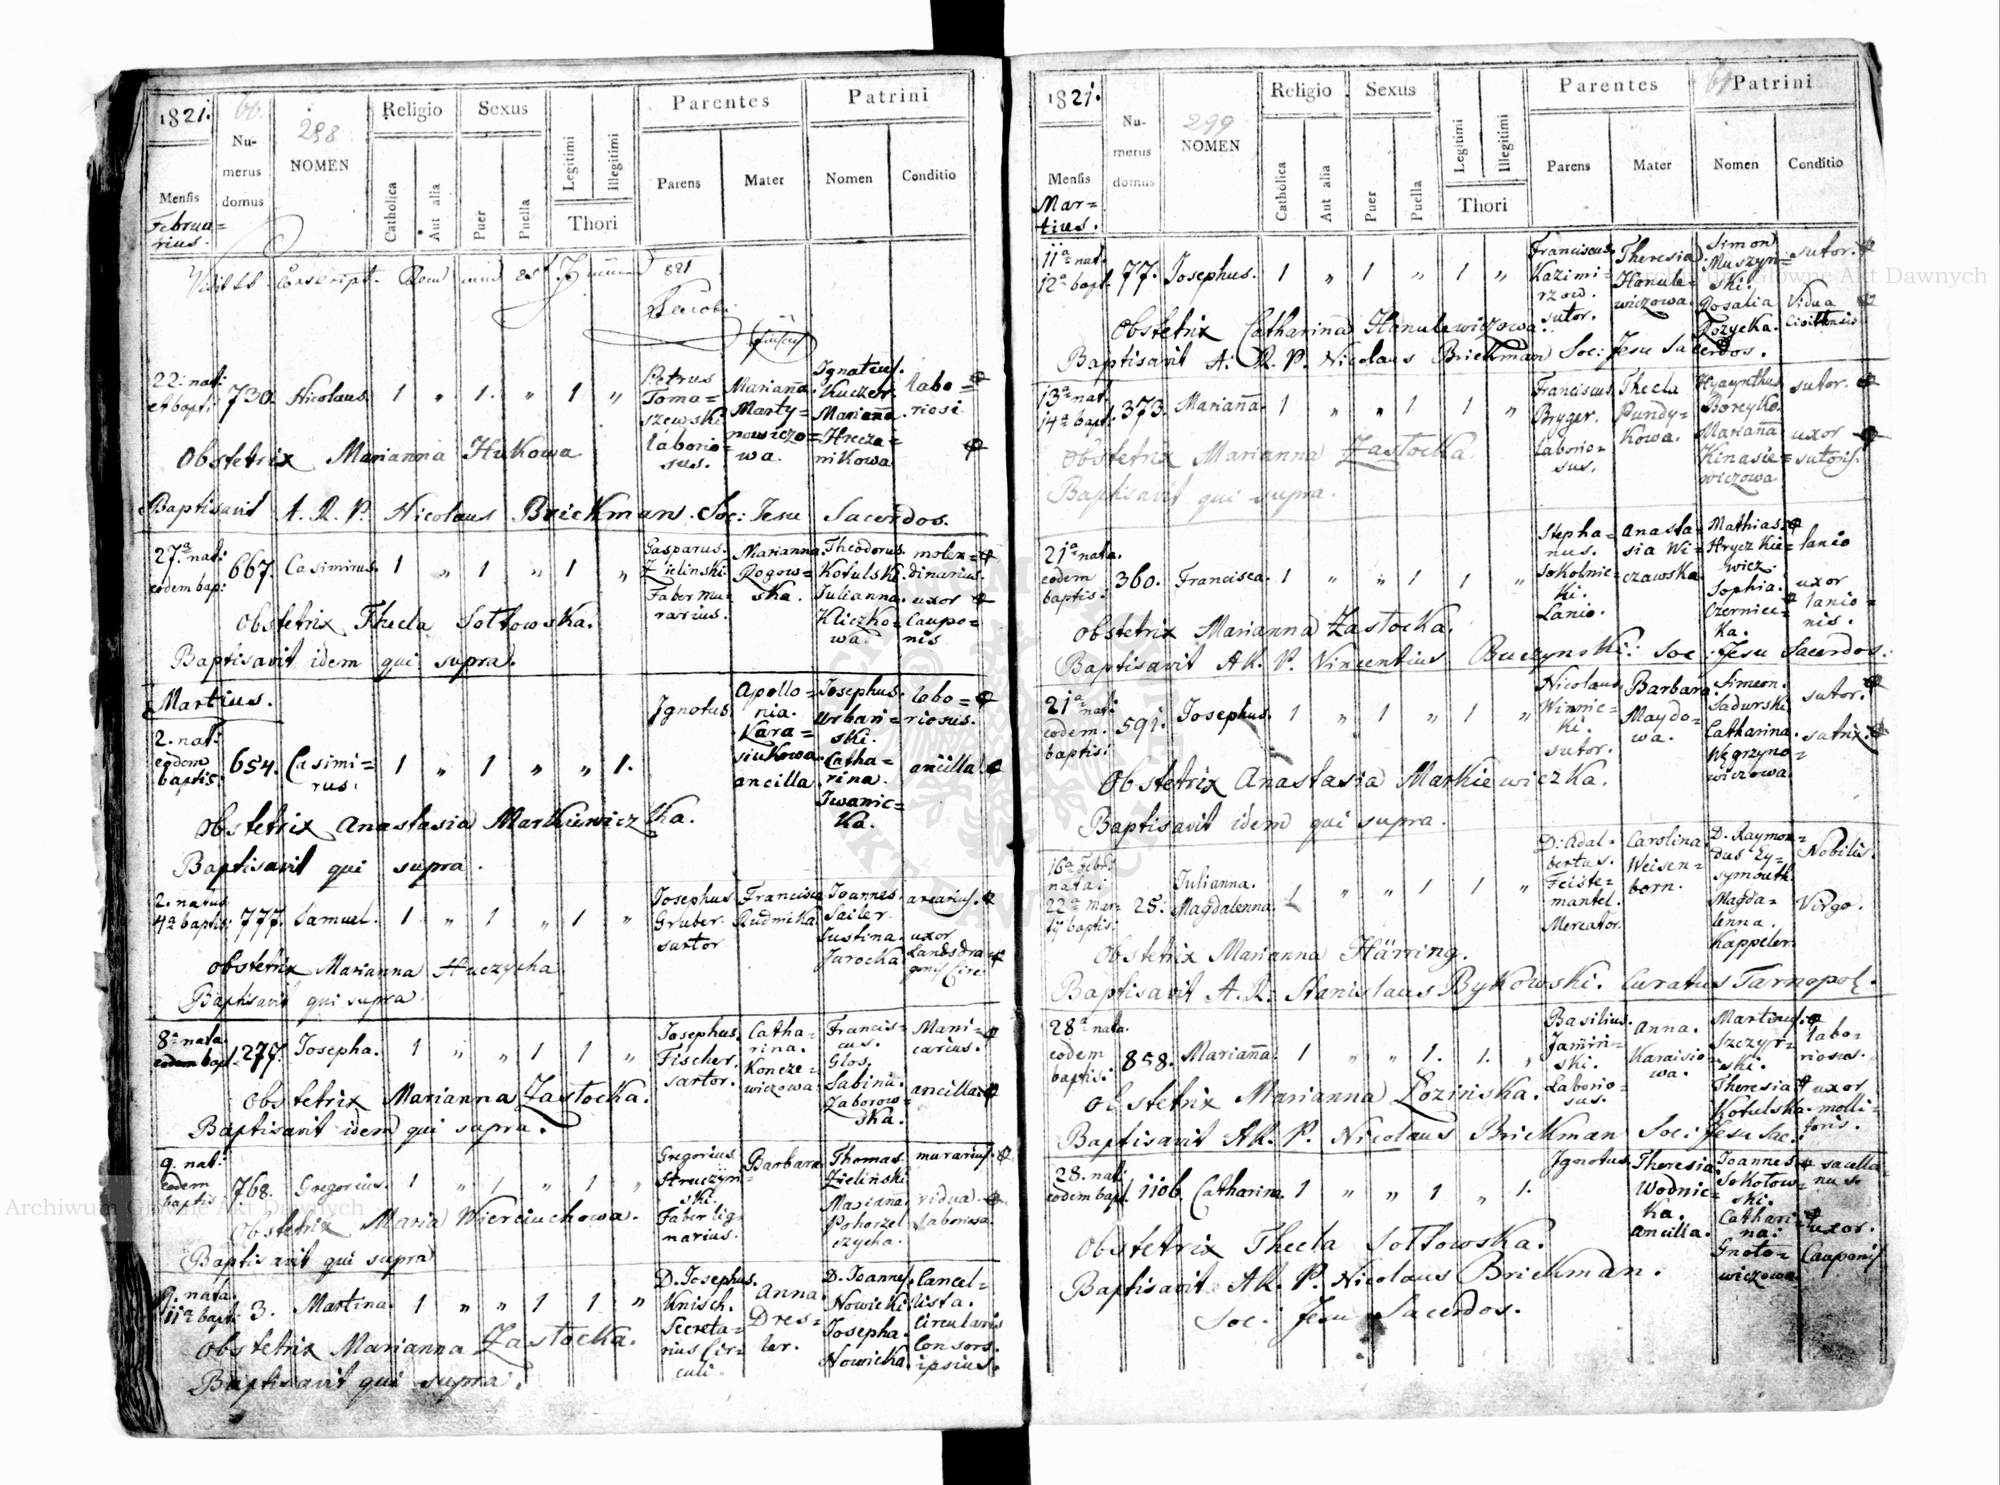 1821.
60.
Nu-
merus
domus
298
NOMEN
Religio
Catholica
Aut alia
Sexus
Puer
Puella
Legitimi
Illegitimi
Thori
Parentes
Parens
Mater
Patrini
Nomen
Conditio
Mensis
Februa=
rius.
821
22. nat:
et bapti:
730.
Nicolaus.
1 „ 1. „ 1 „
Petrus
Toma=
szewski
laborio=
sus.
Marianna
Marty=
nowiczo=
wa.
Ignatius.
Kucker.
Marianna
Hrecza=
nikowa
labo=
riosi
Obstetrix Marianna Hukowa
Baptisavit A. R. P. Nicolaus Brickman Soc: Jesu Sacerdos.
27.a nat:
eodem bap:
667.
Casimirus.
1 „ 1 „ 1 „
Gasparus.
Zielinski.
Faber mu=
rarius.
Marianna
Rogow=
ska.
Theodorus.
Kotulski.
Julianna.
Kliczko=
wa
molen=
dinarius.
uxor
Caupo=
nis
Obstetrix Thecla Sołtowska.
Baptisavit idem qui supra.
Martius.
2. nat:
eodem
baptis:
654.
Casimi=
rus.
1 „ 1 „ „ 1.
Ignotus.
Apollo=
nia.
Kara=
siukowa
ancilla.
Josephus.
Urban=
ski.
Catha=
rina.
Iwanic=
ka.
labo=
riosus.
ancilla.
Obstetrix Anastasia Markiewiczka.
Baptisavit qui supra.
2. natus
4a baptis:
777.
Samuel.
1 „ 1 „ 1 „
Josephus
Gruber.
sartor
Francisca
Rudnicka.
Joannes.
Sailer.
Justina.
Jarocka
arcarius.
uxor
Landsdra=
gonis Circ:
Obstetrix Marianna Huczycha
Baptisavit qui supra.
8a nata.
eodem bapt.
277.
Josepha.
1 „ „ 1 1 „
Josephus.
Fischer.
sartor.
Catha=
rina.
Koncze=
wiczowa.
Francis=
cus.
Glos.
Sabina.
Zaborow=
ska.
Mani=
carius.
ancilla.
Obstetrix Marianna Zastocka.
Baptisavit idem qui supra.
9. nat:
eodem
baptis:
768.
Gregorius.
1 „ 1 „ 1 „
Gregorius
Struczyn=
ski.
Faber lig
narius.
Barbara
Thomas
Zielinski.
Marianna.
Pohorzel
czycha.
murarius.
vidua.
laboriosa.
Obstetrix Maria Wierciuchowa.
Baptisavit qui supra
9. nata.
11a bapt:
3.
Martina.
1 „ „ 1 1 „
D. Josephus.
Knisch.
Secreta=
rius Cir=
culi.
Anna
Dres=
ler.
D. Joannes.
Nowicki.
Josepha.
Nowicka.
Cancel=
lista.
Circularis
Consors.
ipsius.
Obstetrix Marianna Zastocka.
Baptisavit qui supra.
1821.
Nu-
merus
domus
299
NOMEN
Religio
Catholica
Aut alia
Sexus
Puer
Puella
Legitimi
Illegitimi
Thori
Parentes
Parens
Mater
61
Patrini
Nomen
Conditio
Mensis
Mar=
tius.
11a nat.
12a bapt.
77.
Josephus.
1 „ 1 „ 1 „
Franciscus.
Kazimi=
rzow.
sutor.
Theresia
Hanule=
wiczowa.
Simon
Muszyn=
ski.
Rosalia
Rozycka.
sutor.
Vidua
Civittensis
Obstetrix Catharina Hanulewiczowa.
Baptisavit A. R. P. Nicolaus Brickman Soc: Jesu Sacerdos.
13a nat.
14a bapt:
373.
Marianna.
1 „ „ 1 1 „
Franciscus
Bryger.
Laborio=
sus.
Thecla
Pundy=
kowa.
Hyacynthus
Boreyko.
Marianna
Kinasie=
wiczowa
sutor.
uxor
sutoris.
Obstetrix Marianna Zastocka.
Baptisavit qui supra.
21a nata.
eodem
baptis:
360.
Francisca.
1 „ „ 1 1 „
Stepha=
nus.
Sokolnic=
ki.
Lanio.
Anasta=
sia Wi=
czawska
Mathias.
Hryczkie=
wicz.
Sophia.
Czernic=
ka.
lanio
uxor
lanio=
nis.
Obstetrix Marianna Zastocka.
Baptisavit AR. P. Vincentius Buczynski: Soc: Jesu Sacerdos.
21a nat:
eodem.
baptis:
591.
Josephus.
1 „ 1 „ 1 „
Nicolaus
Winnic=
ki.
sutor.
Barbara
Maydo=
wa.
Simeon.
Sadurski.
Catharina.
Węgrzyno=
wiczowa.
sutor.
sutrix.
Obstetrix Anastasia Markiewiczka.
Baptisavit idem qui supra.
16a Febr:
nata:
22a mar=
tij baptis:
25.
Julianna.
Magdalenna.
1 „ „ 1 1 „
D. Adal=
bertus.
Feiste=
mantel.
Mercator.
Carolina
Weisen=
born.
D. Raymon=
dus Ey=
symouth.
Magda=
lenna.
Kappeler.
Nobilis.
Virgo.
Obstetrix Marianna Härring.
Baptisavit A. R: Stanislaus Bykowski. Curatus Tarnopol.
28a nata.
eodem
baptis:
858.
Marianna.
1 „ „ 1. 1. „
Basilius.
Jamin=
ski.
Laborio=
sus.
Anna.
Karaisio
wa.
Martinus.
Szczyr=
ski.
Theresia
Kotulska.
labo=
riosus.
uxor
molli=
toris.
Obstetrix Marianna Łozinska.
Baptisavit AR. P. Nicolaus Brickman Soc: Jesu Sac:
28. nat.
eodem bapt.
1106.
Catharina.
1 „ „ 1 „ 1.
Ignotus.
Theresia.
Wodnic=
ka.
ancilla.
Joannes
Sokołow=
ski.
Cathari=
na:
Gnoto=
wiczowa.
sacella=
nus
uxor.
Cauponis
Obstetrix Thecla Sołtowska.
Baptisavit AR. P. Nicolaus Brickman.
Soc: Jesu Sacerdos.
Archiwum Główne Akt Dawnych
Archiwum Główne Akt Dawnych